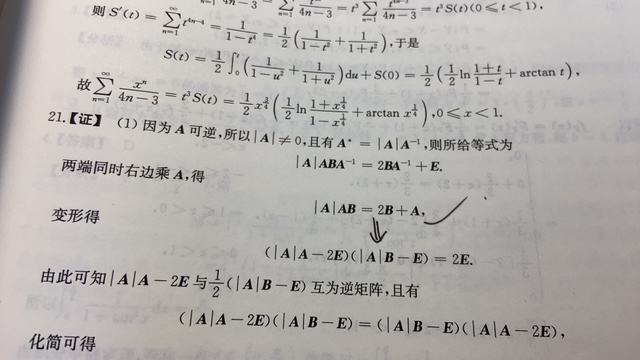 则 S′(t) = ∑_{n=1}^{∞} t^{4n-4} = 1/(1-t⁴) = 1/2 (1/(1-t²) + 1/(1+t²)), 于是
S(t) = 1/2 ∫₀ᵗ (1/(1-u²) + 1/(1+u²)) du + S(0) = 1/2 (1/2 ln (1+t)/(1-t) + arctan t),
故 ∑_{n=1}^{∞} xⁿ/(4n-3) = t³S(t) = 1/2 x^{3/4} (1/2 ln (1+x^{1/4})/(1-x^{1/4}) + arctan x^{1/4}), 0 ≤ x < 1.
21.【证】 (1) 因为 A 可逆,所以 |A| ≠ 0,且有 A* = |A|A⁻¹,则所给等式为
|A|ABA⁻¹ = 2BA⁻¹ + E.
两端同时右边乘 A,得
|A|AB = 2B + A,
变形得
(|A|A − 2E)(|A|B − E) = 2E.
由此可知 |A|A − 2E 与 1/2(|A|B − E) 互为逆矩阵,且有
(|A|A − 2E)(|A|B − E) = (|A|B − E)(|A|A − 2E),
化简可得